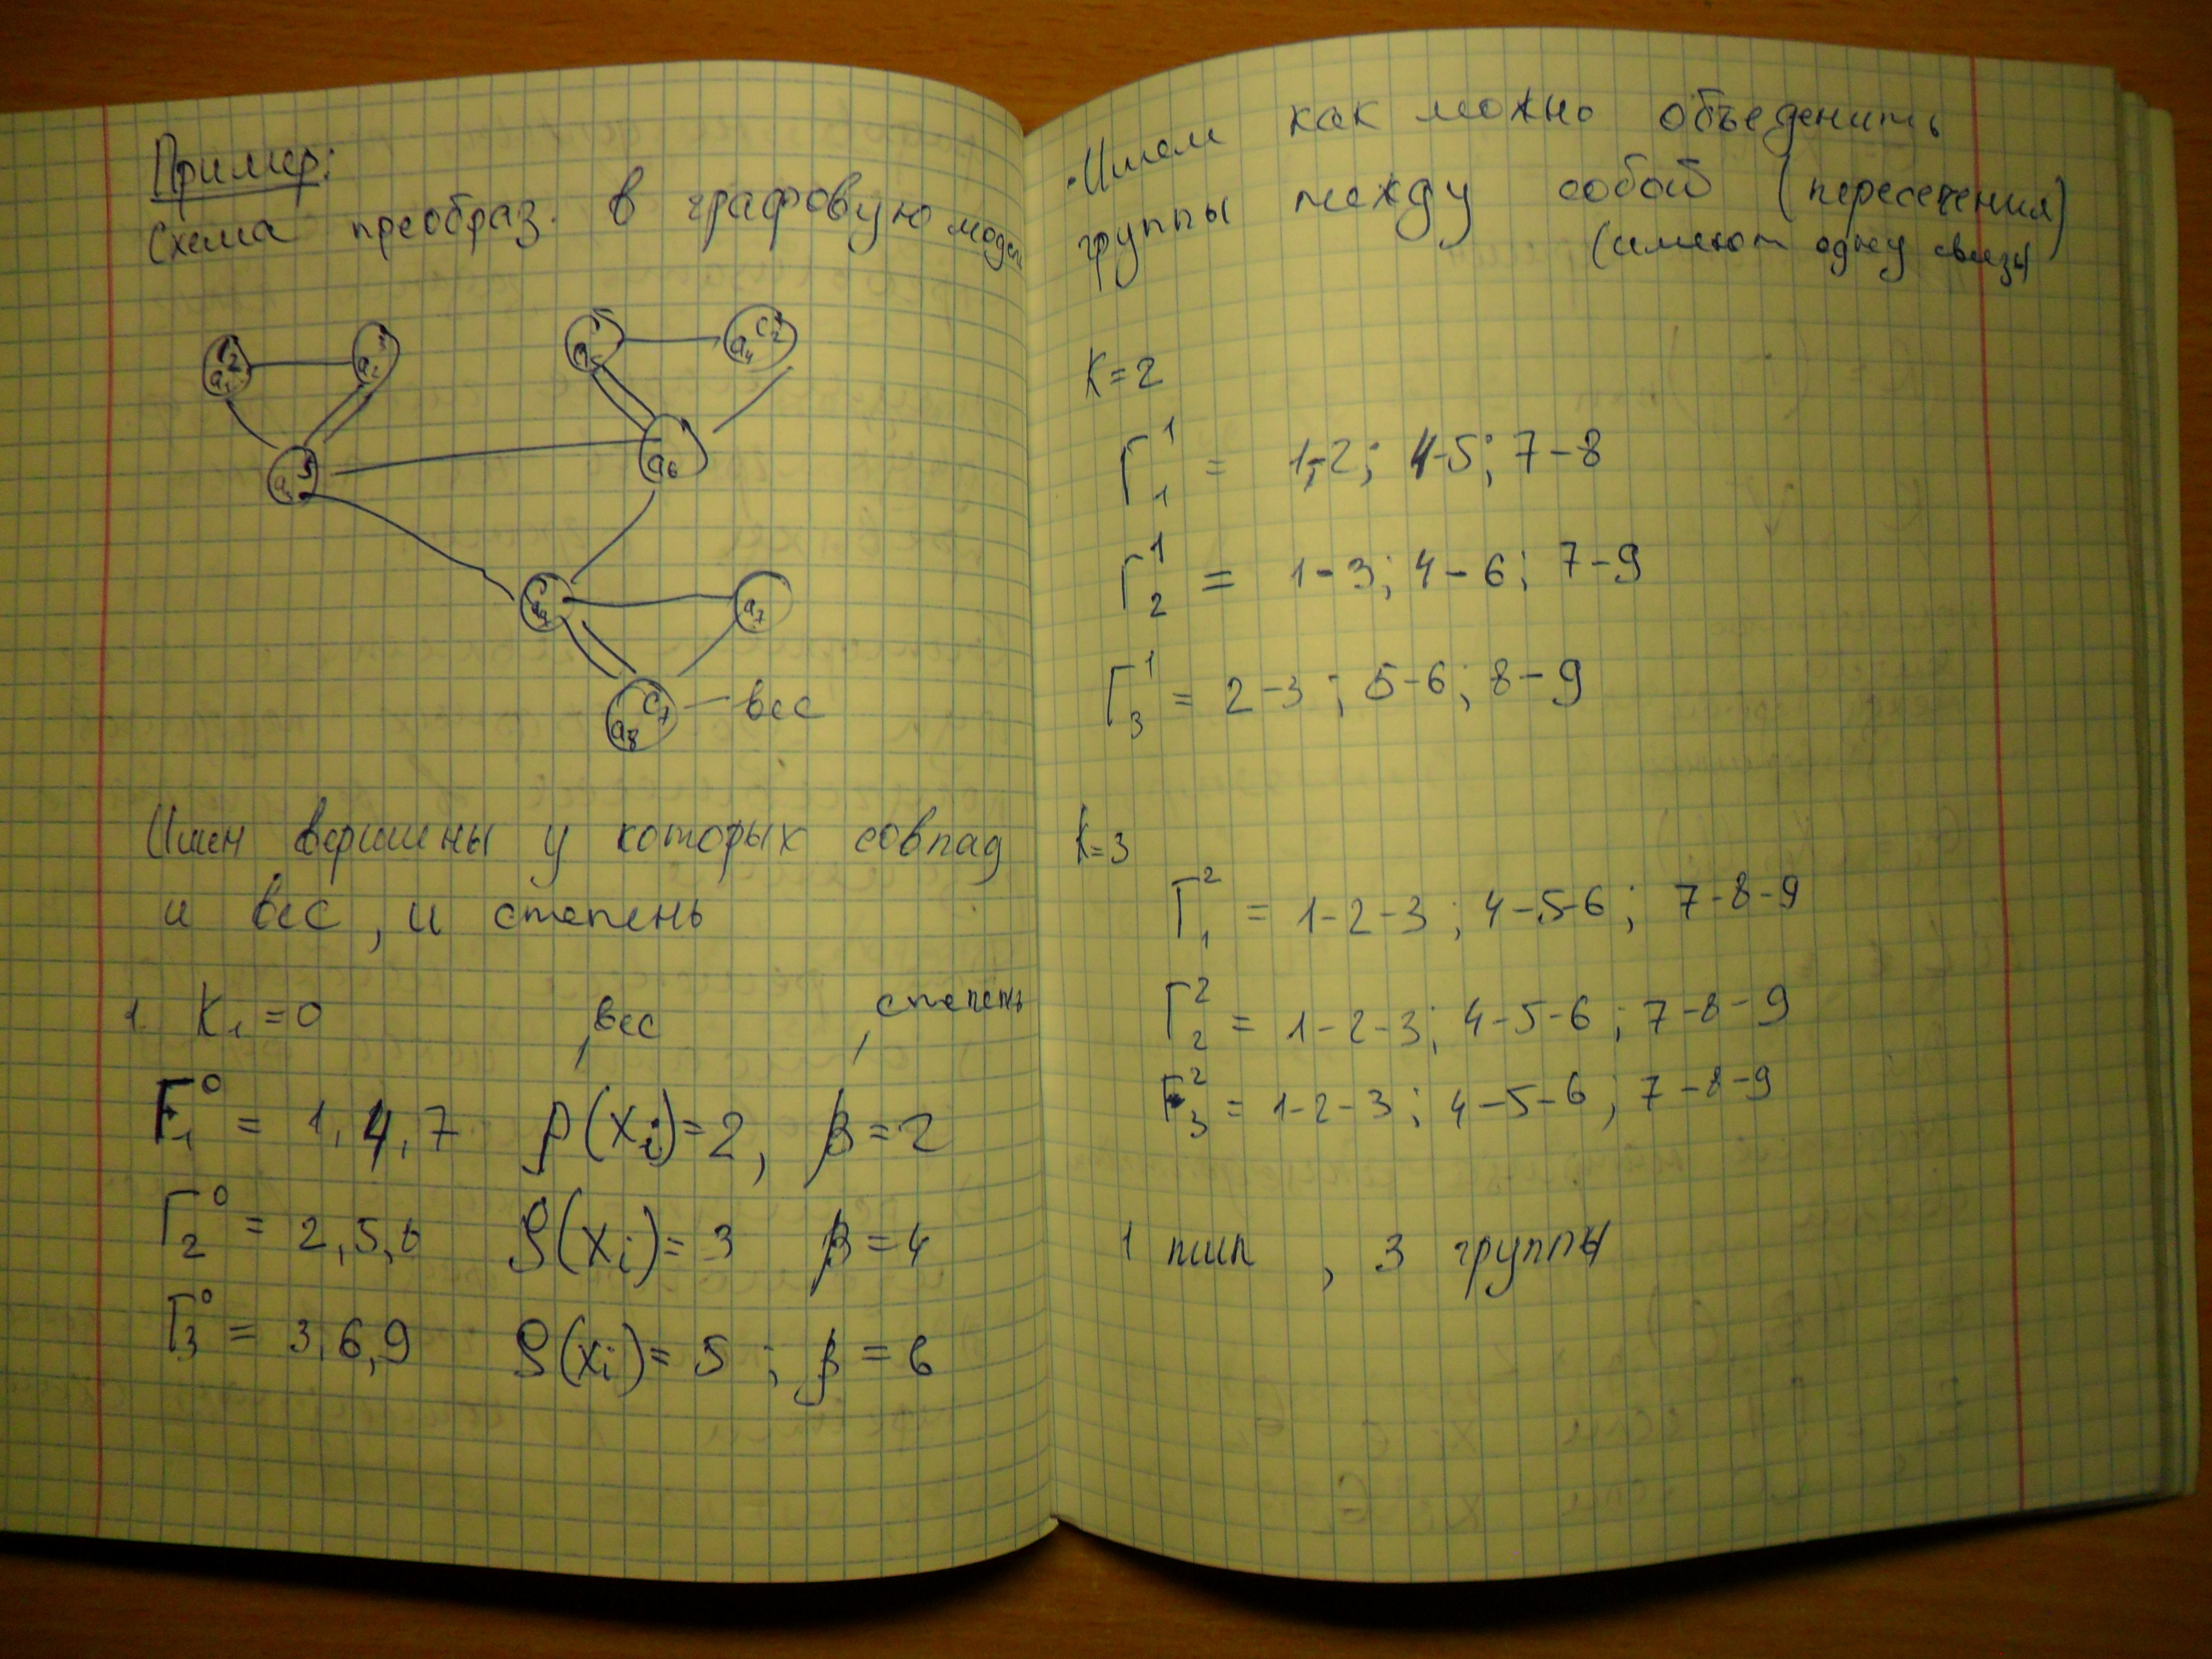 Пример:
Схема преобраз. в графовую модел
a₁ 2
a₂ 3
a₅
a₄ C₂
a₃ 5
a₆
a₇
a₈ C₇ — вес
Ищем вершины у которых совпад
и вес, и степень
1. K₁ = 0 вес степень
Г₁⁰ = 1, 4, 7 ρ(xᵢ)=2, β=2
Г₂⁰ = 2, 5, 6 ρ(xᵢ)=3 β=4
Г₃⁰ = 3, 6, 9 ρ(xᵢ)=5; β=6
· Ищем как можно объеденить
группы между собой (пересечения)
(имеют одну связь)
K=2
Г₁¹ = 1-2; 4-5; 7-8
Г₂¹ = 1-3; 4-6; 7-9
Г₃¹ = 2-3; 5-6; 8-9
K=3
Г₁² = 1-2-3; 4-5-6; 7-8-9
Г₂² = 1-2-3; 4-5-6; 7-8-9
Г₃² = 1-2-3; 4-5-6; 7-8-9
1 тип, 3 группы